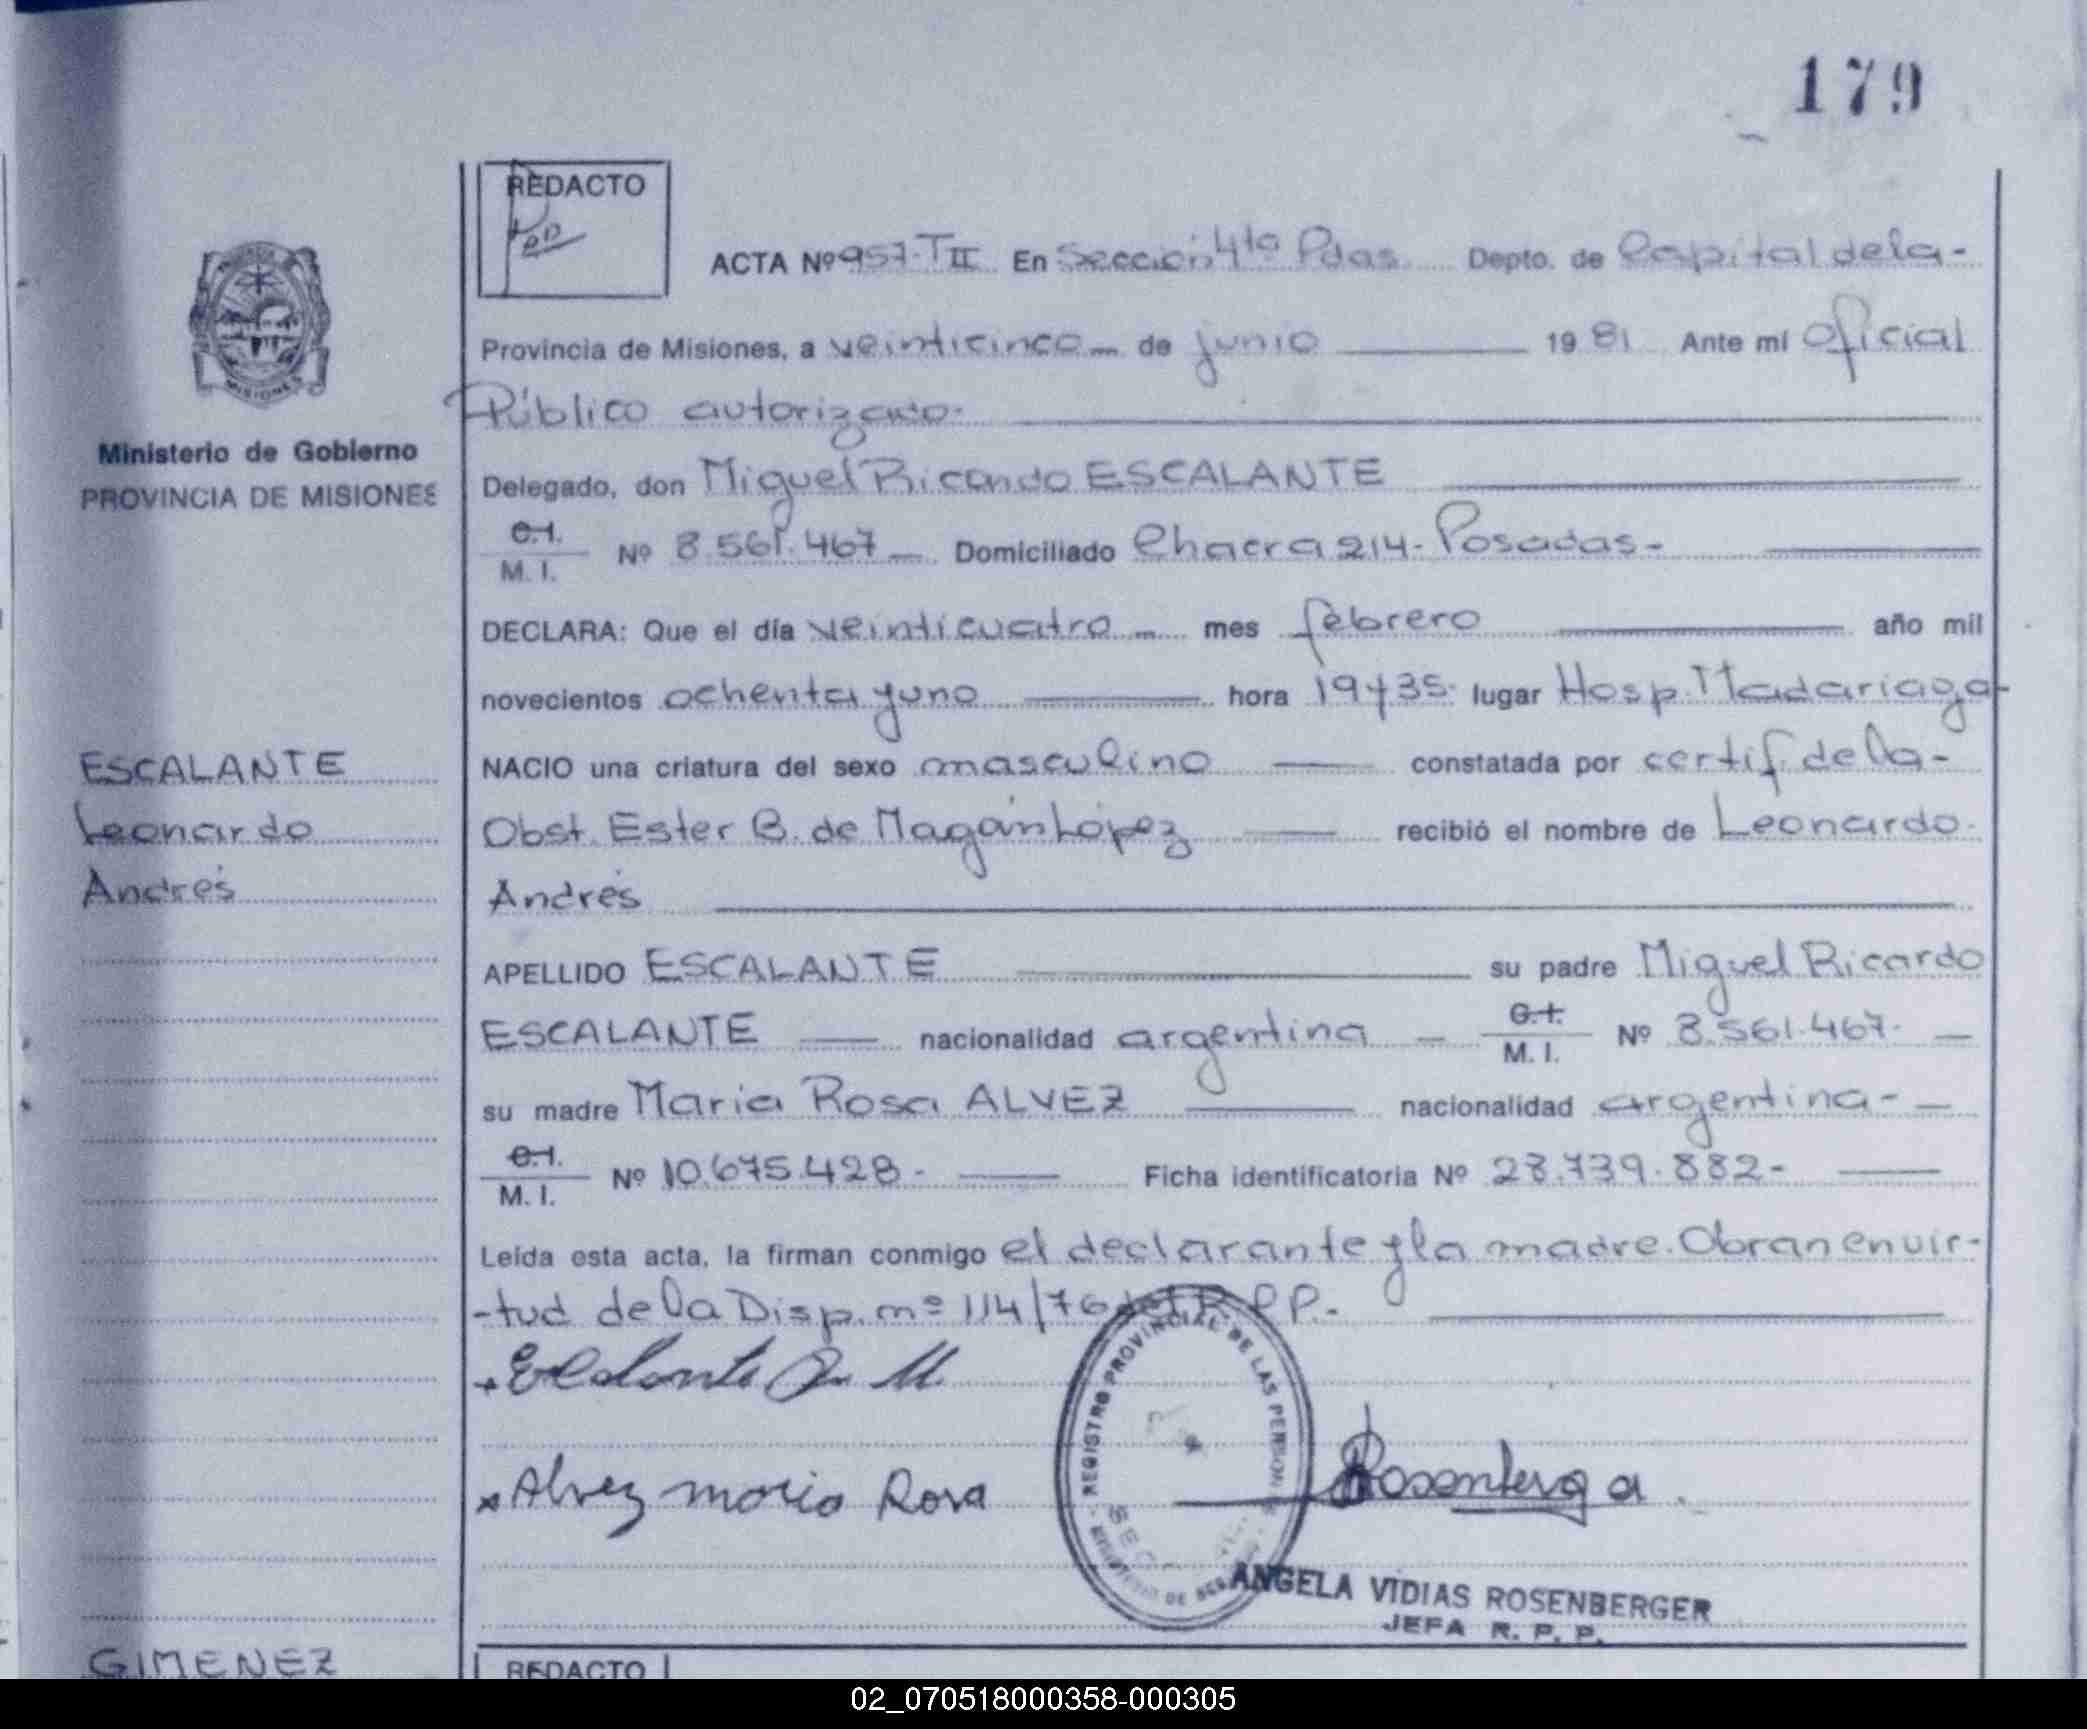 179
REDACTO
ACTA Nº 957-TII En Sección 4ta Pdas. Depto. de Capital dela-
Provincia de Misiones, a veinticinco de junio 1981 Ante mí Oficial
Público autorizado.
Ministerio de Gobierno
PROVINCIA DE MISIONES
MISIONES
Delegado, don Miguel Ricardo ESCALANTE
C.I.
M. I. Nº 8.561.467 Domiciliado Chacra 214- Posadas-
DECLARA: Que el día veinticuatro mes febrero año mil
novecientos ochenta y uno hora 19 y 35. lugar Hosp. Madariaga-
ESCALANTE
Leonardo
Andrés
NACIO una criatura del sexo masculino constatada por certif. de la-
Obst. Ester B. de Magán López recibió el nombre de Leonardo.
Andrés
APELLIDO ESCALANTE su padre Miguel Ricardo
ESCALANTE nacionalidad argentina C.I. M. I. Nº 8.561.467.
su madre Maria Rosa ALVEZ nacionalidad argentina-
C.I.
M. I. Nº 10.675.428- Ficha identificatoria Nº 28.739.882-
Leída esta acta, la firman conmigo el declarante y la madre. Obran en vir-
-tud de la Disp. nº 114/76 del R.P.P.-
Alvez Maria Rosa
Rosenberg a
REGISTRO PROVINCIAL DE LAS PERSONAS
ANGELA VIDIAS ROSENBERGER
JEFA R. P. P.
GIMENEZ
REDACTO
02_070518000358-000305